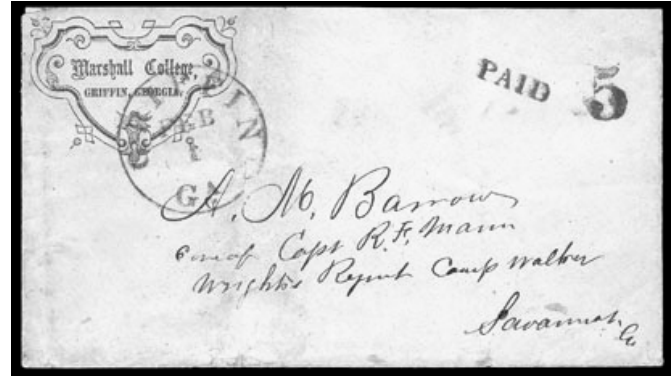 Marshall College,
GRIFFIN, GEORGIA.
GRIFFIN
FEB
GA
PAID 5
A. M. Barrow
care of Capt R. F. Mann
Wright's Regmt Camp Walker
Savannah
Ga